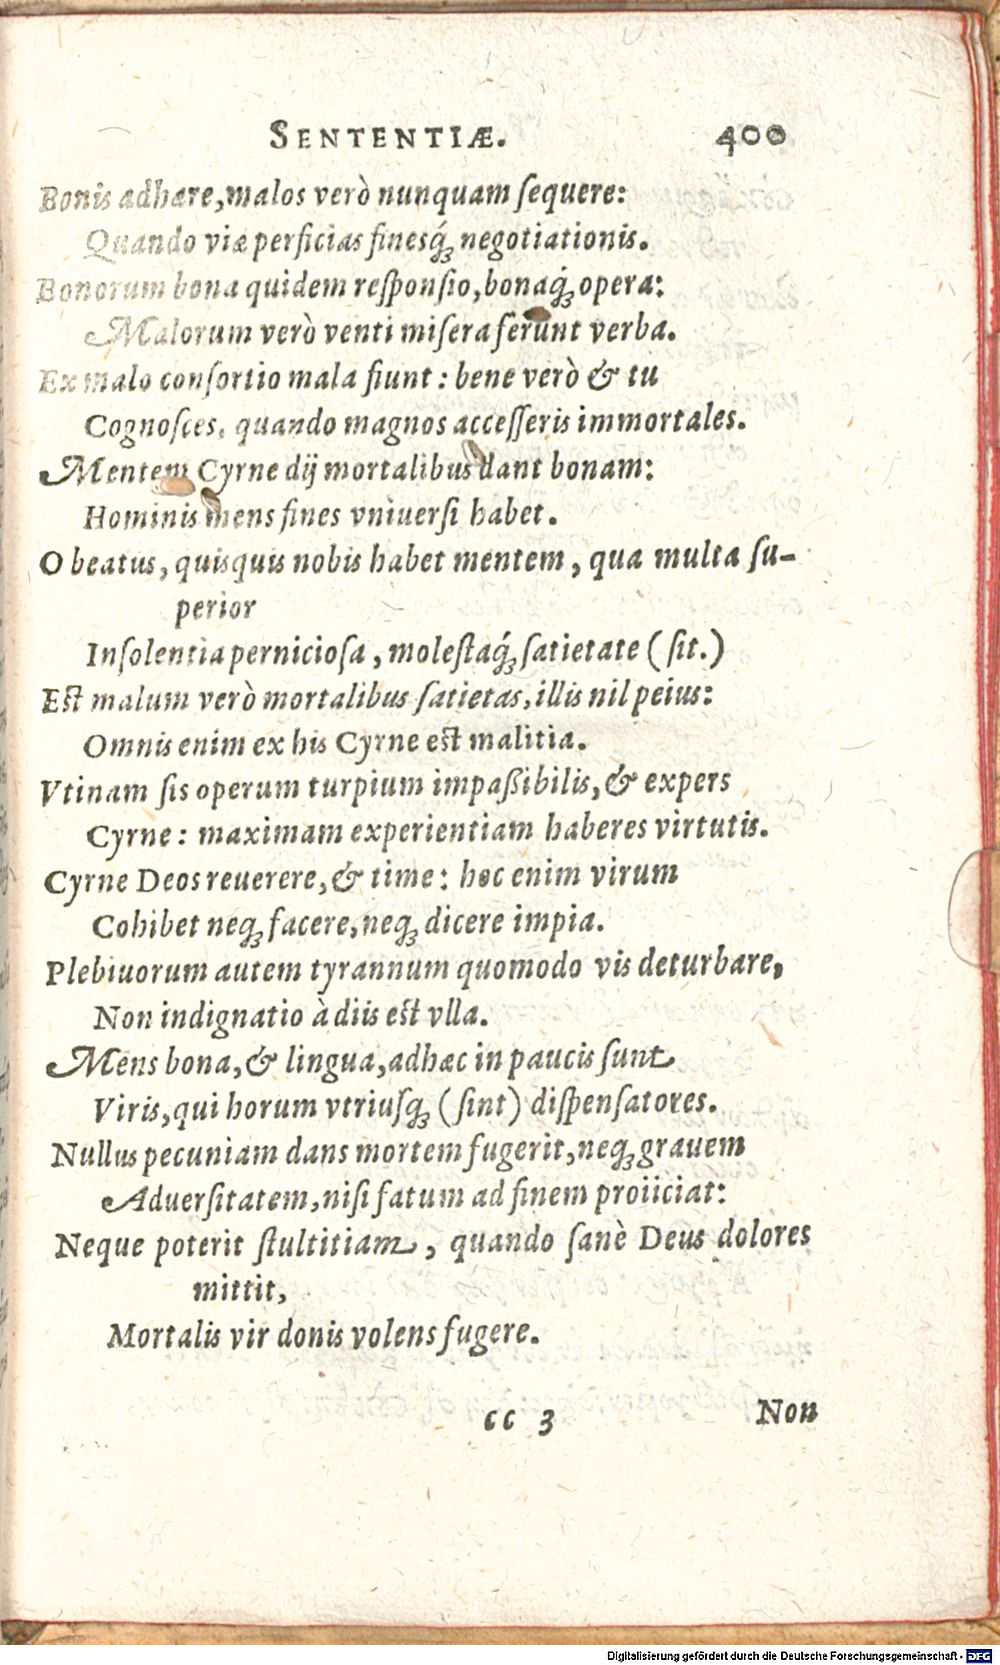 SENTENTIÆ. 400
Bonis adhære, malos verò nunquam ſequere:
Quando viæ perficias finesq́ꝫ negotiationis.
Bonorum bona quidem reſponſio, bonaq́ꝫ opera:
Malorum verò venti miſera ferunt verba.
Ex malo conſortio mala fiunt: bene verò & tu
Cognoſces, quando magnos acceſſeris immortales.
Mentem Cyrne dij mortalibus dant bonam:
Hominis mens fines vniuerſi habet.
O beatus, quisquis nobis habet mentem, qua multa ſu-
perior
Inſolentia pernicioſa, moleſtaq́ꝫ ſatietate (ſit.)
Eſt malum verò mortalibus ſatietas, illis nil peius:
Omnis enim ex his Cyrne eſt malitia.
Vtinam ſis operum turpium impaßibilis, & expers
Cyrne: maximam experientiam haberes virtutis.
Cyrne Deos reuerere, & time: hoc enim virum
Cohibet neqꝫ facere, neqꝫ dicere impia.
Plebiuorum autem tyrannum quomodo vis deturbare,
Non indignatio à diis eſt vlla.
Mens bona, & lingua, adhæc in paucis ſunt
Viris, qui horum vtriuſqꝫ (ſint) diſpenſatores.
Nullus pecuniam dans mortem fugerit, neqꝫ grauem
Aduerſitatem, niſi fatum ad finem proiiciat:
Neque poterit ſtultitiam, quando ſanè Deus dolores
mittit,
Mortalis vir donis volens fugere.
cc 3 Non
Digitalisierung gefördert durch die Deutsche Forschungsgemeinschaft - DFG